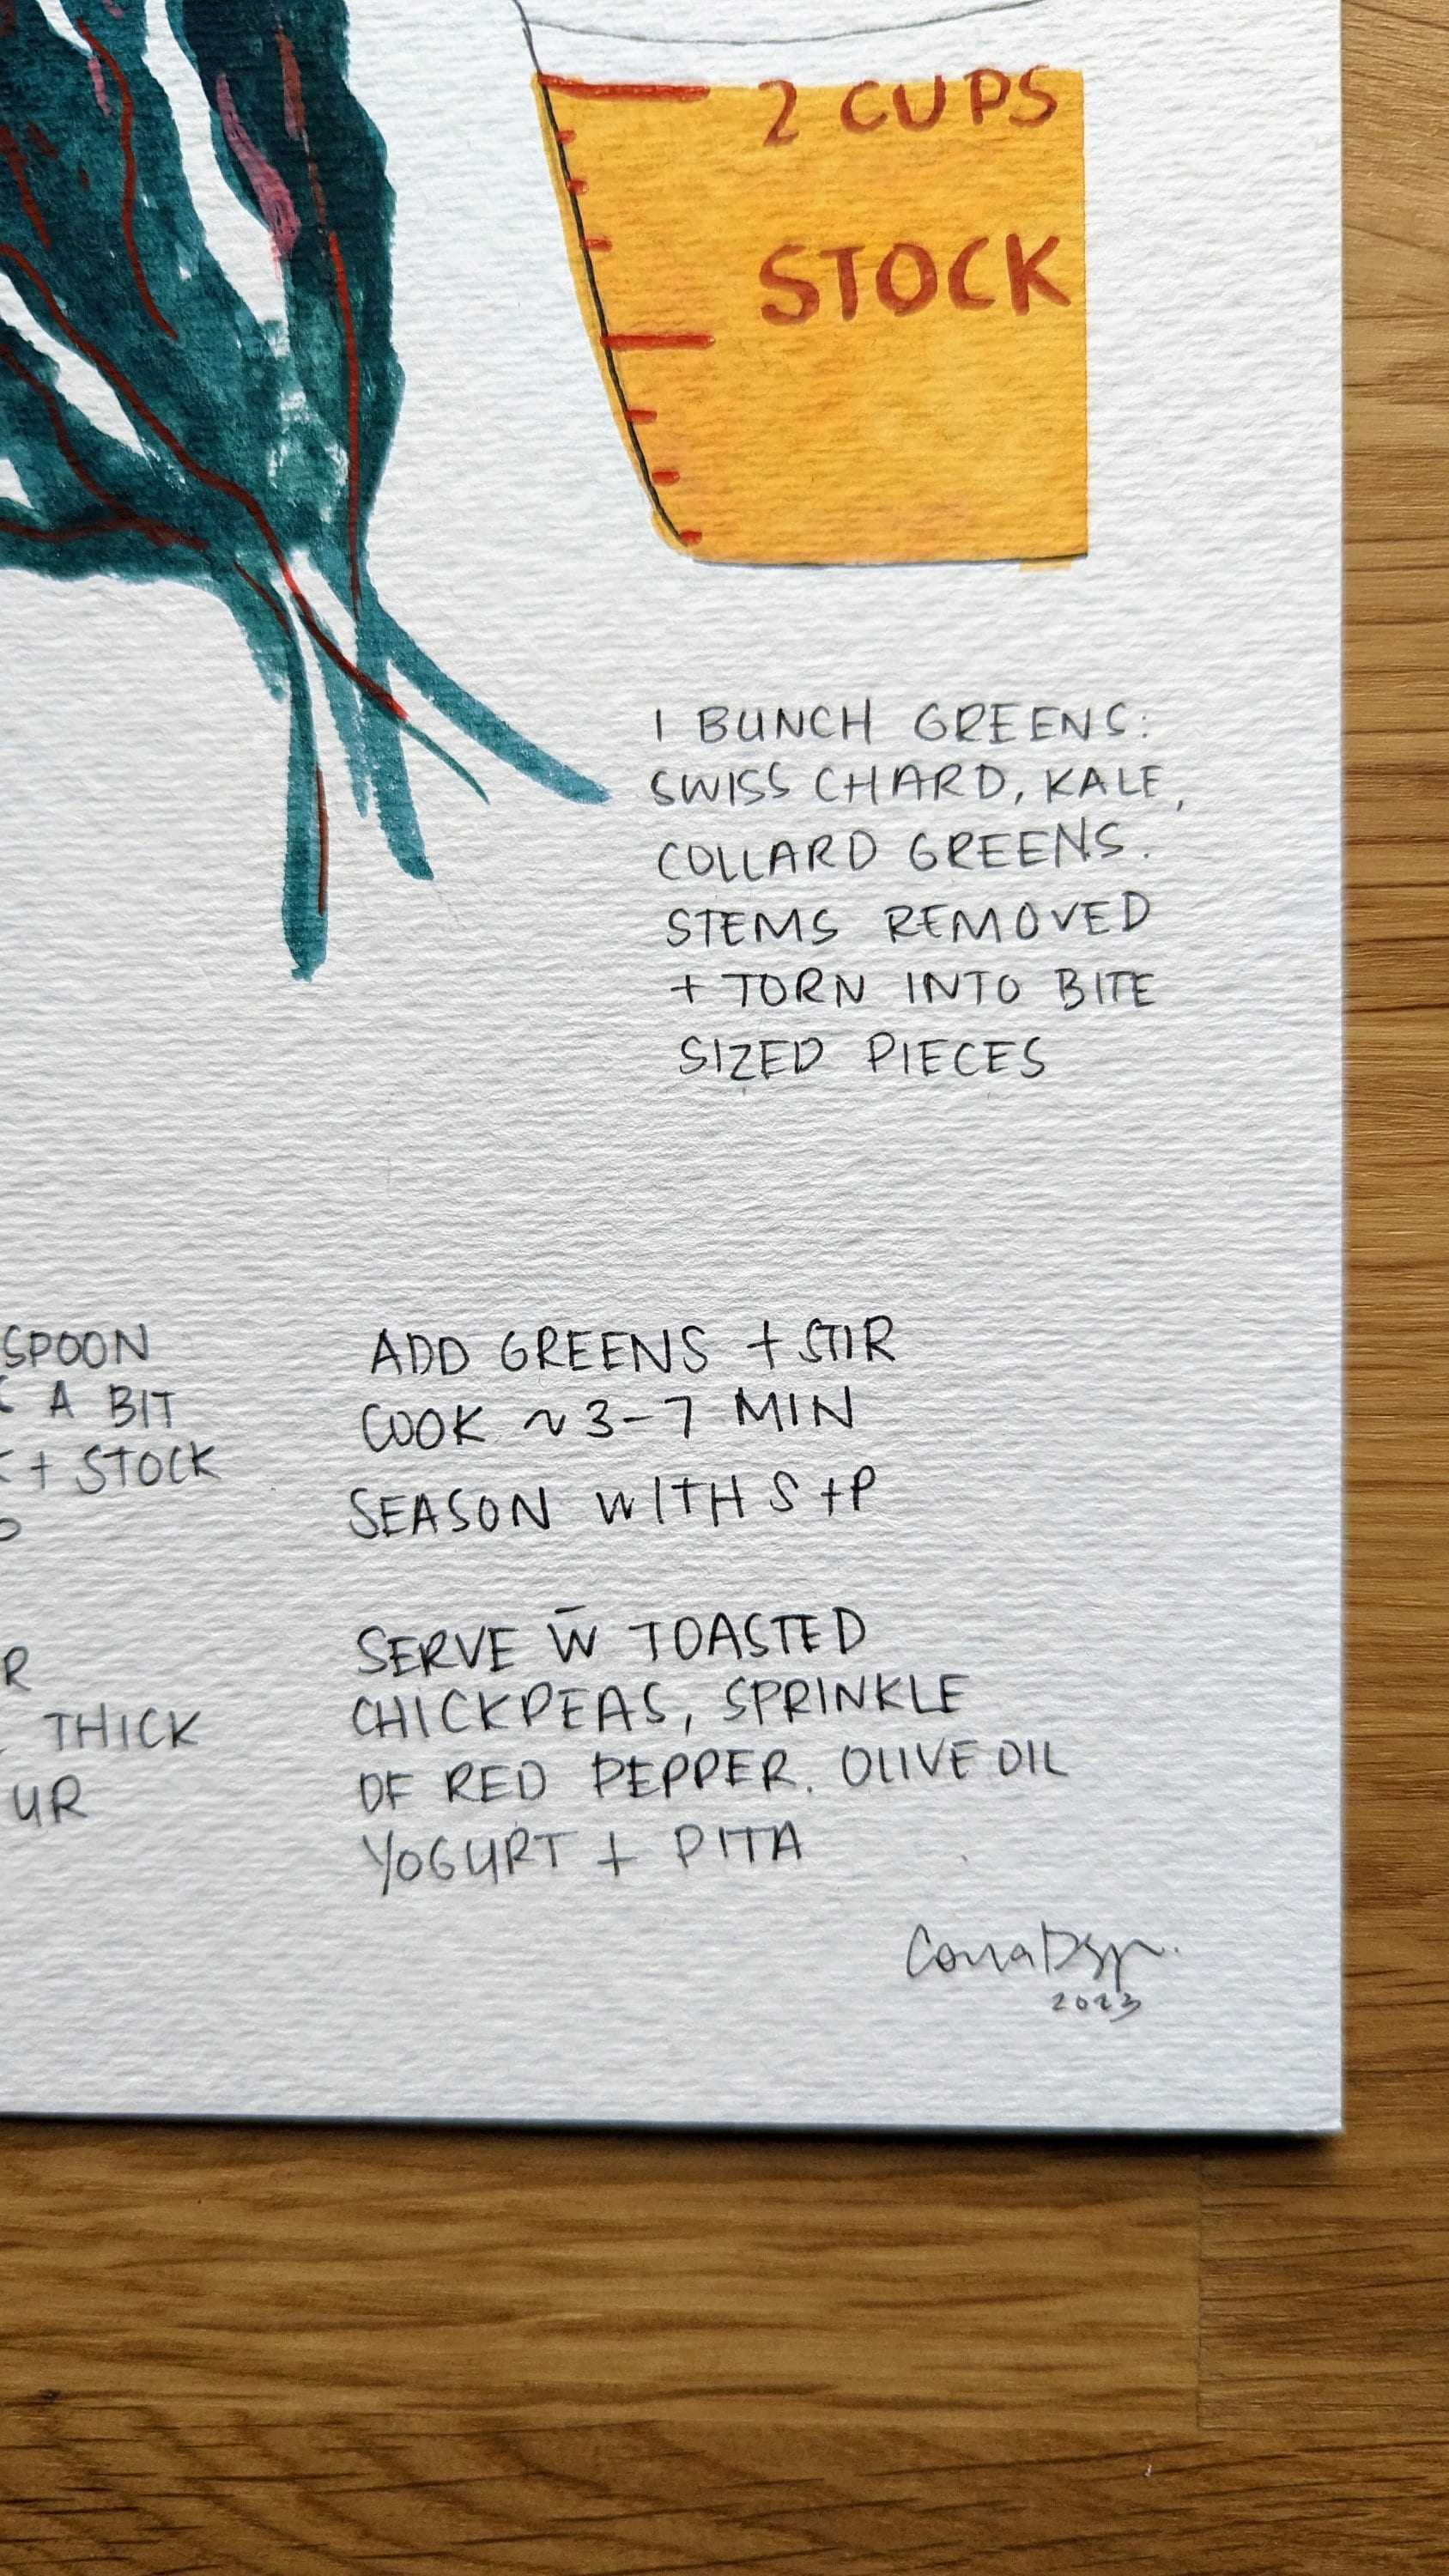 2 CUPS
STOCK
1 BUNCH GREENS:
SWISS CHARD, KALE,
COLLARD GREENS.
STEMS REMOVED
+ TORN INTO BITE
SIZED PIECES
SPOON
A BIT
+ STOCK
R
THICK
UR
ADD GREENS + STIR
COOK ~3-7 MIN
SEASON WITH S+P
SERVE W̄ TOASTED
CHICKPEAS, SPRINKLE
OF RED PEPPER. OLIVE OIL
YOGURT + PITA
2023